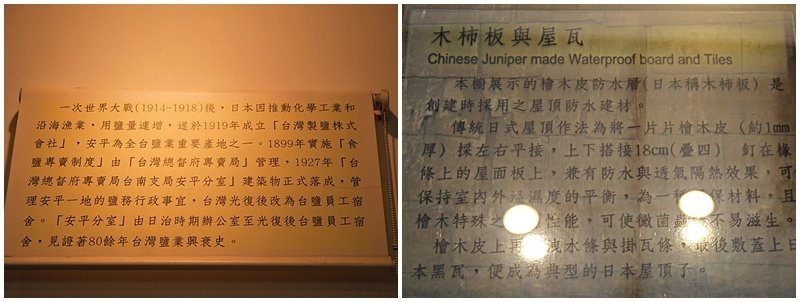 一次世界大戰(1914-1918)後，日本因推動化學工業和
沿海漁業，用鹽量遽增，遂於1919年成立「台灣製鹽株式
會社」，安平為全台鹽業重要產地之一。1899年實施「食
鹽專賣制度」由「台灣總督府專賣局」管理，1927年「台
灣總督府專賣局台南支局安平分室」建築物正式落成，管
理安平一地的鹽務行政事宜，台灣光復後改為台鹽員工宿
舍。「安平分室」由日治時期辦公室至光復後台鹽員工宿
舍，見證著80餘年台灣鹽業興衰史。
木柿板與屋瓦
Chinese Juniper made Waterproof board and Tiles
本櫥展示的檜木皮防水層(日本稱木柿板)是
創建時採用之屋頂防水建材。
傳統日式屋頂作法為將一片片檜木皮（約1mm
厚）採左右平接，上下搭接18cm(疊四) 釘在椽
條上的屋面板上，兼有防水與透氣隔熱效果，可
保持室內外溫濕度的平衡，為一種 保材料，且
檜木特殊之 性能，可使黴菌 不易滋生。
檜木皮上再 洩水條與掛瓦條，最後敷蓋上日
本黑瓦，便成為典型的日本屋頂了。